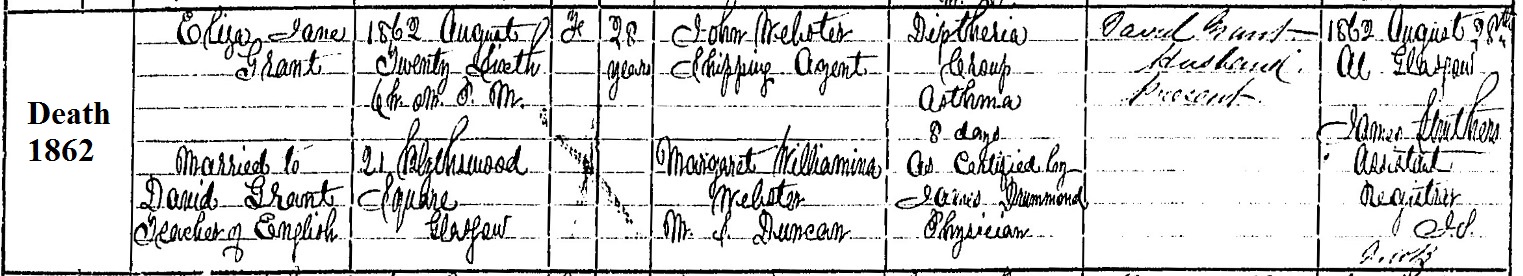 Death
1862
Eliza Jane
Grant
Married to
David Grant
Teacher of English
1862 August
Twenty Sixth
6 h. 0 M. P. M.
21 Blythswood
Square
Glasgow
F
28
years
John Webster
Shipping Agent
Margaret Williamina
Webster
M. S. Duncan
Diptheria
Croup
Asthma
8 days
As Certified by
James Drummond
Physician
David Grant
Husband.
Present.
1862 August 28th
At Glasgow
James Struthers
Assistant
Registrar
J.S.